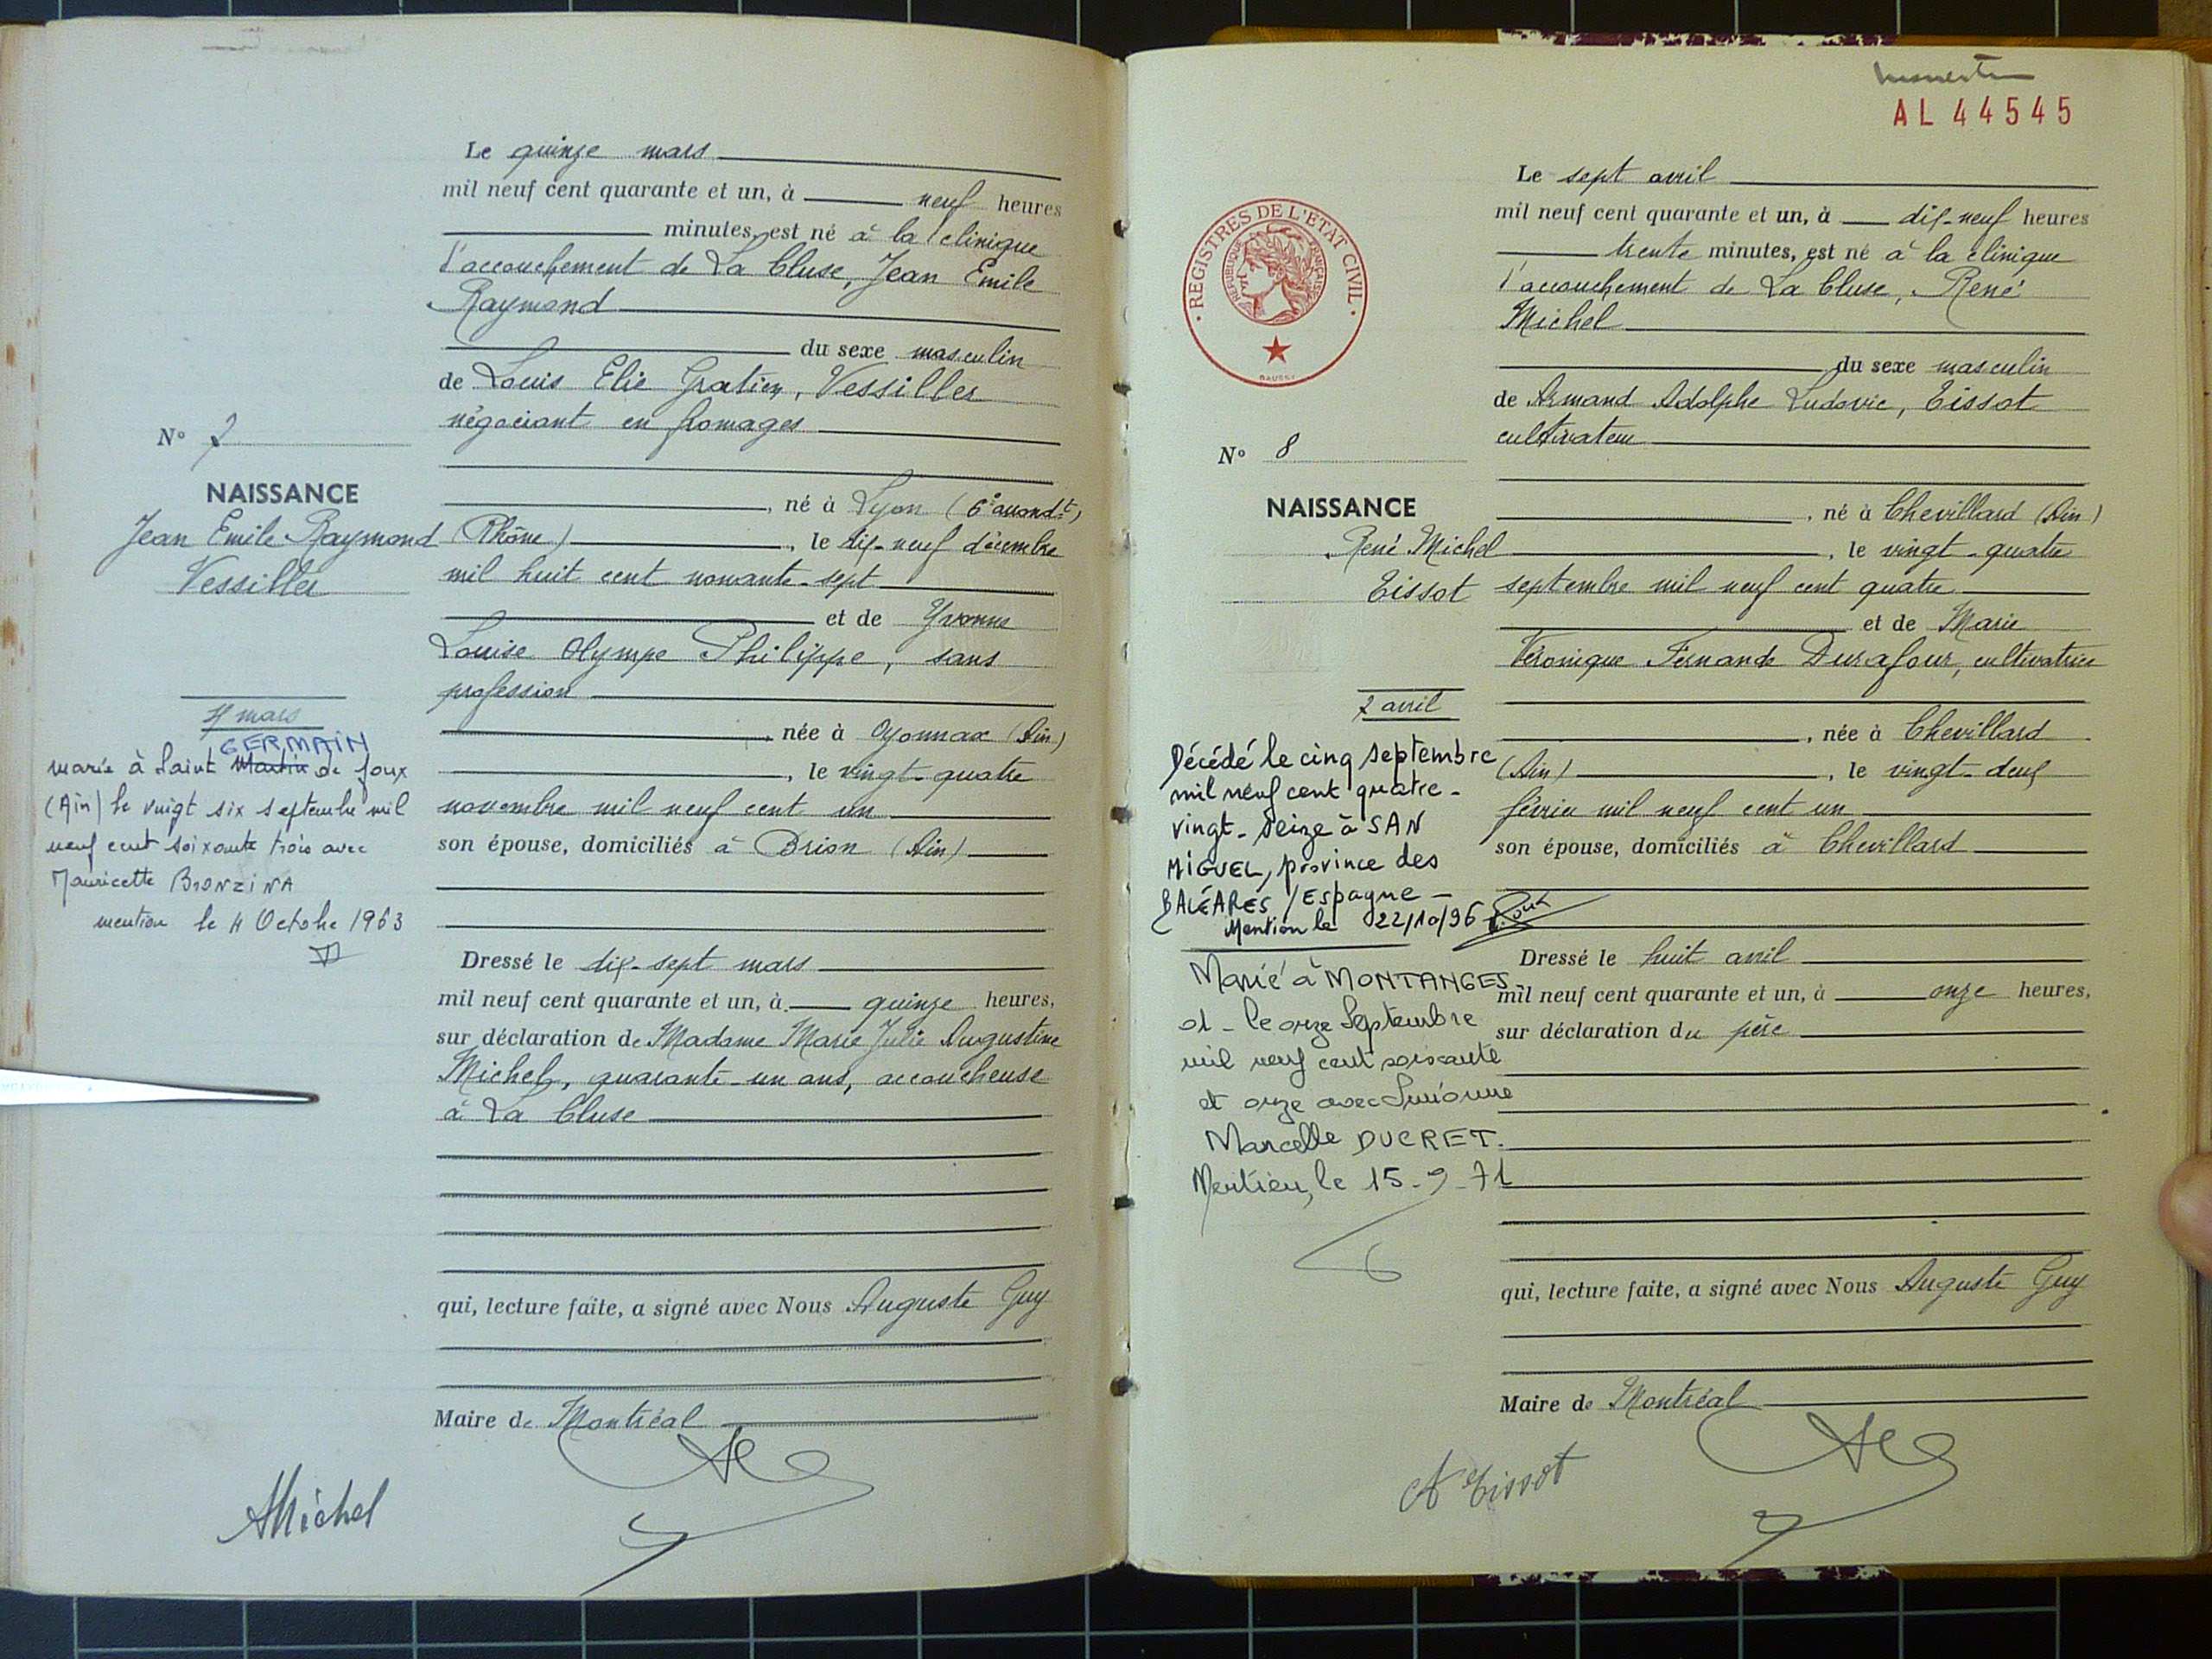 Le quinze mars
mil neuf cent quarante et un, à neuf heures
minutes, est né à la clinique
d'accouchement de La Cluse, Jean Emile
Raymond
du sexe masculin
de Louis Elie Gratien, Vessiller
négociant en fromages
N° 7
NAISSANCE
Jean Emile Raymond
Vessiller
né à Lyon (6e arrondt)
(Rhône), le dix-neuf décembre
mil huit cent nonante-sept
et de Yvonne
Louise Olympe Philippe, sans
profession
, née à Oyonnax (Ain)
, le vingt-quatre
novembre mil neuf cent un
son épouse, domiciliés à Brion (Ain)
mars
GERMAIN
marié à Saint Martin de Joux
(Ain) le vingt six septembre mil
neuf cent soixante trois avec
Mauricette BRONZINA
mention le 4 Octobre 1963
Dressé le dix-sept mars
mil neuf cent quarante et un, à quinze heures,
sur déclaration de Madame Marie Julie Augustine
Michel, quarante-un ans, accoucheuse
à La Cluse
qui, lecture faite, a signé avec Nous Auguste Guy
Maire de Montréal
AMichel
AL 44545
REGISTRES DE L'ÉTAT CIVIL
RÉPUBLIQUE FRANÇAISE
Le sept avril
mil neuf cent quarante et un, à dix-neuf heures
trente minutes, est né à la clinique
d'accouchement de La Cluse, René
Michel
du sexe masculin
de Armand Adolphe Ludovic, Tissot
cultivateur
N° 8
NAISSANCE
René Michel
Tissot
, né à Chevillard (Ain)
, le vingt-quatre
septembre mil neuf cent quatre
et de Marie
Véronique Fernande Durafour, cultivatrice
, née à Chevillard
(Ain), le vingt-deux
février mil neuf cent un
son épouse, domiciliés à Chevillard
7 avril
Décédé le cinq septembre
mil neuf cent quatre-
vingt-seize à SAN
MIGUEL, province des
BALÉARES / Espagne -
Mention le 22/10/96
Marié à MONTANGES
01 - le onze Septembre
mil neuf cent soixante
et onze avec Simonne
Marcelle DUCRET.
le 15-9-71
Dressé le huit avril
mil neuf cent quarante et un, à onze heures,
sur déclaration du père
qui, lecture faite, a signé avec Nous Auguste Guy
Maire de Montréal
A Tissot